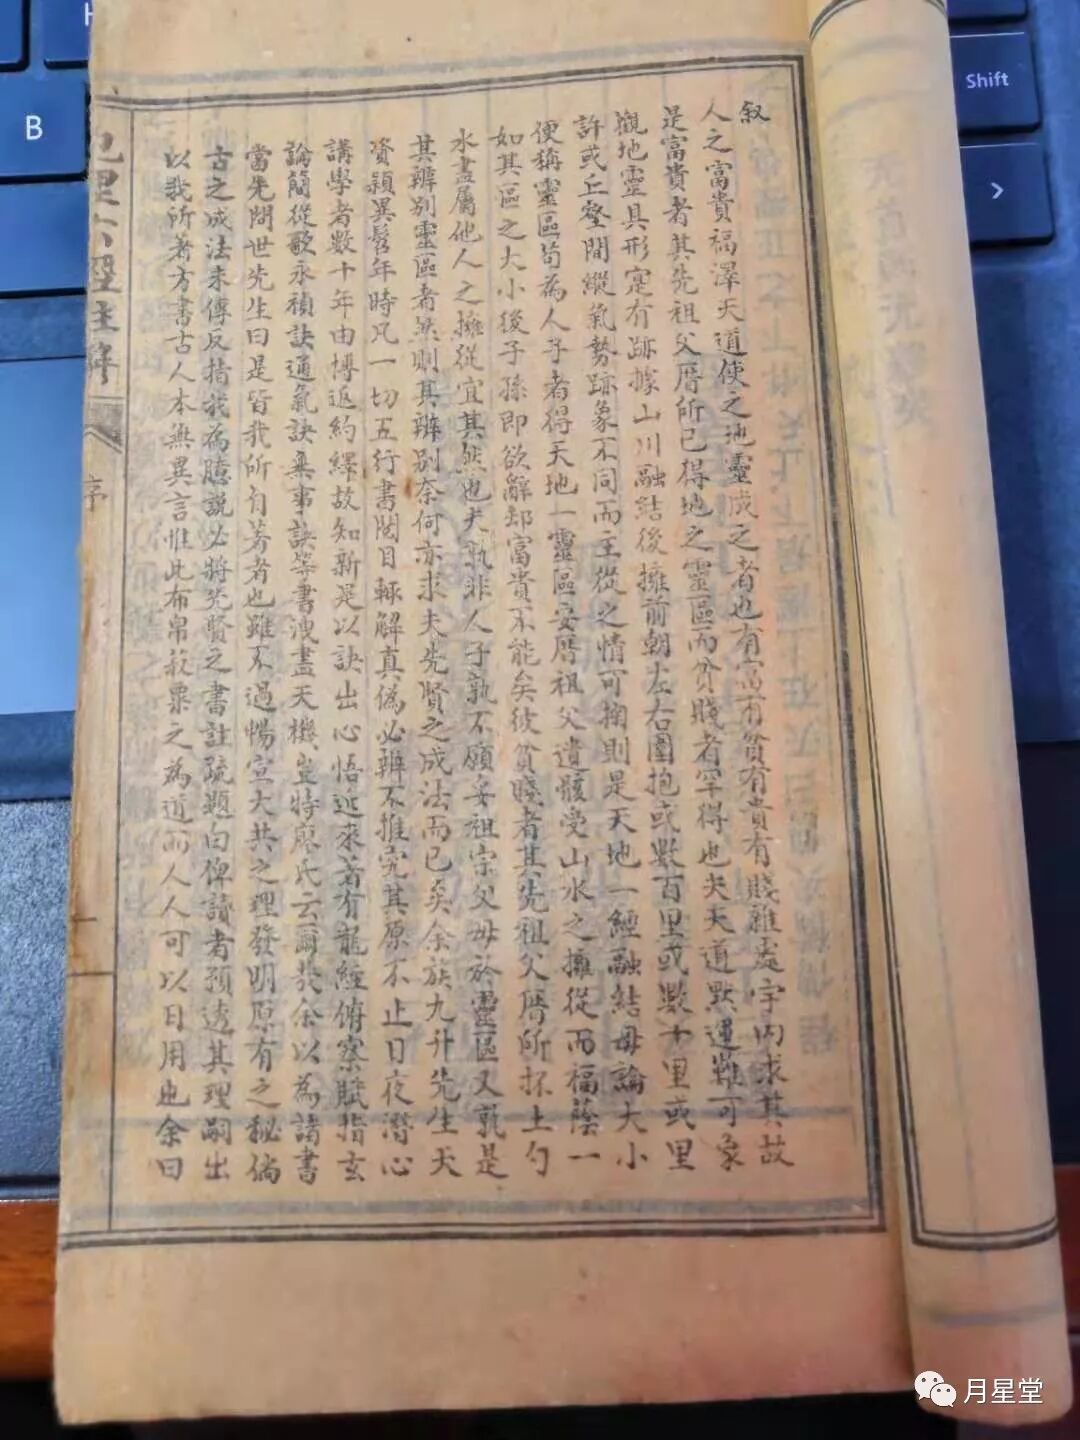 叙
人之富貴福澤天道使之地靈成之者也有富有貧有貴有賤雜處宇內求其故
是富貴者其先祖父厝所已得地之靈區而貧賤者罕得也夫天道默運難可象
觀地靈具形寔有跡據山川融結後擁前朝左右圍抱或數百里或數十里或里
許或丘壑間縱氣勢跡象不同而主從之情可掬則是天地一經融結毋論大小
便稱靈區苟為人子者得天地一靈區安厝祖父遺骸受山水之擁從而福蔭一
如其區之大小後子孫即欲辭却富貴不能矣彼貧賤者其先祖父厝所抔土勺
水盡屬他人之擁從宜其然也夫孰非人子孰不願妥祖宗父母於靈區又孰是
其辨別靈區者然則其辨別奈何亦求夫先賢之成法而已矣余族九升先生天
資穎異髫年時凡一切五行書閱目輒解真偽必辨不推究其原不止日夜潛心
講學者數十年由博返約繹故知新是以訣出心悟近來著有龍經俯察賦指玄
論簡從歌永禎訣通氣訣乘事訣等書洩盡天機豈特廖氏云爾哉余以為諸書
當先問世先生曰是皆我所自著者也雖不過暢宣大共之理發明原有之秘倘
古之成法未傳反指我為臆說必將先賢之書註疏題白俾讀者預透其理嗣出
以我所著方書古人本無異言惟此布帛菽粟之為道而人人可以日用也余曰
地理六經註解
序
B
Shift
月星堂